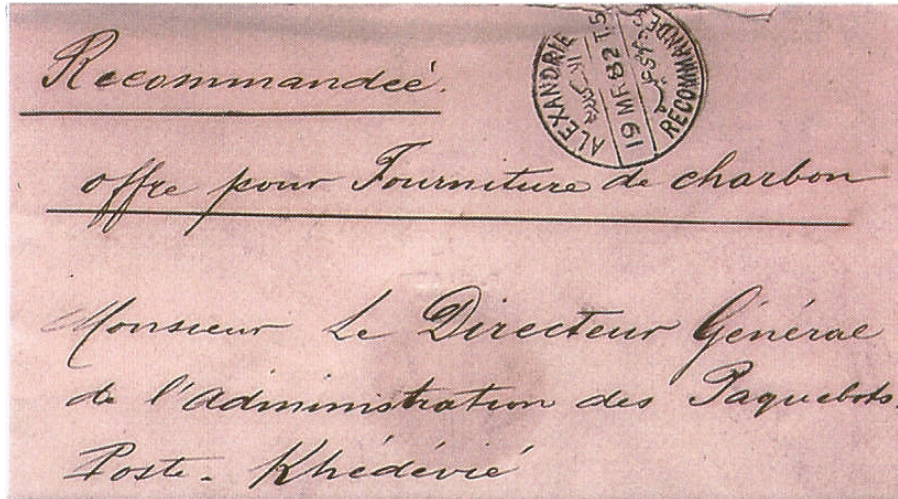 Recommandeé.
ALEXANDRIE
19 MR 82 T.5
RECOMMANDE
offre pour Fourniture de charbon
Monsieur Le Directeur Général
de l'administration des Paquebots-
Poste. Khédévié